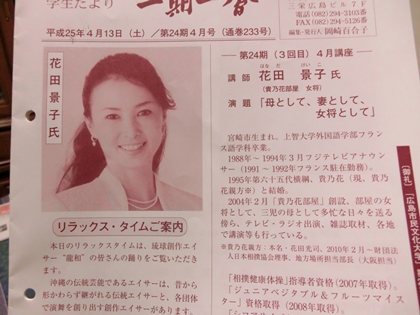 学生だより
一期一会
三栄広島ビル7F
電話(082)294-3103番
FAX(082)294-5126番
編集・発行人 岡崎百合子
平成25年4月13日(土)/第24期4月号(通巻233号)
花田 景子 氏
第24期(3回目)4月講座
講師 花田 景子 氏
はなだ けいこ
(貴乃花部屋 女将)
演題 「母として、妻として、
女将として」
宮崎市生まれ。上智大学外国語学部フラン
ス語学科卒業。
1988年~1994年3月フジテレビアナウン
サー(1991~1992年フランス駐在勤務)。
1995年第六十五代横綱、貴乃花(現、貴乃
花親方※)と結婚。
2004年2月「貴乃花部屋」創設、部屋の女
将として、三児の母として多忙な日々を送る
傍ら、テレビ・ラジオ出演、雑誌取材、各地
で講演等も行っている。
※貴乃花親方:本名・花田光司、2010年2月~財団法
人日本相撲協会理事、地方場所担当部長(大阪担当)
「相撲健康体操」指導者資格(2007年取得)。
「ジュニアベジタブル&フルーツマイス
ター」資格取得(2008年取得)。
リラックス・タイムご案内
本日のリラックスタイムは、琉球創作エイ
サー“龍和”の皆さんの踊りをご覧いただき
ます。
沖縄の伝統芸能であるエイサーは、昔から
形かわらず継がれる伝統エイサーと、各団体
で演舞を創り出す創作エイサーがあります。
【御礼】
「広島市民文化大学」